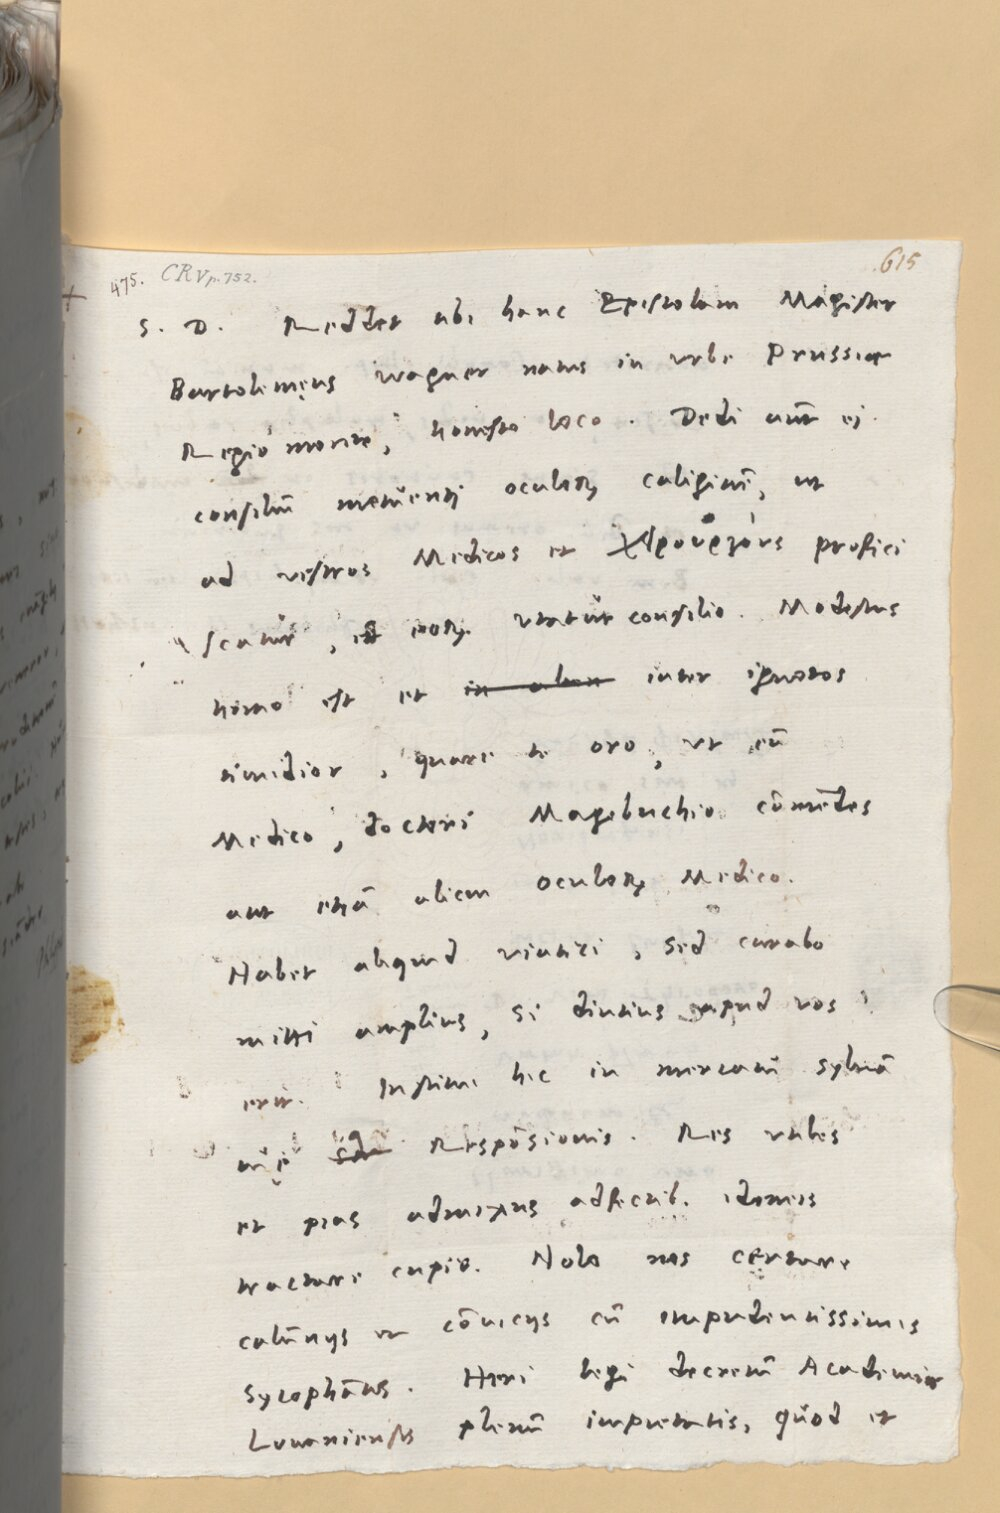 475. CR V p. 752.
615
S. D. Reddet tibi hanc Epistolam Magister
Bartolemęus Wagner natus in urbe Prussiæ
Regio monte, honesto loco. Dedi aūt ei
consiliū metuenti oculorꝝ caliginē, ut
ad vestros Medicos et χειρουργους profici
scatur, et eorꝝ utatur consilio. Modestus
homo est et in alien inter ignotos
timidior, quare te oro, ut eū
Medico, doctori Magebuchio cōmēdes
aut etiā alicui oculorꝝ Medico.
Habet aliquid viatici, sed curabo
mitti amplius, si diutius apud vos
erit. Institui hic in mercatū sylvā
meę Respōsionis. Res tales
et pias adfectib. idoneis
tractare cupio. Nolo nos certare
calūnijs et cōvicijs cū impudentissimis
sycophātis. Heri legi decretū Academiæ
Lovaniensis plenū impietatis, quod et